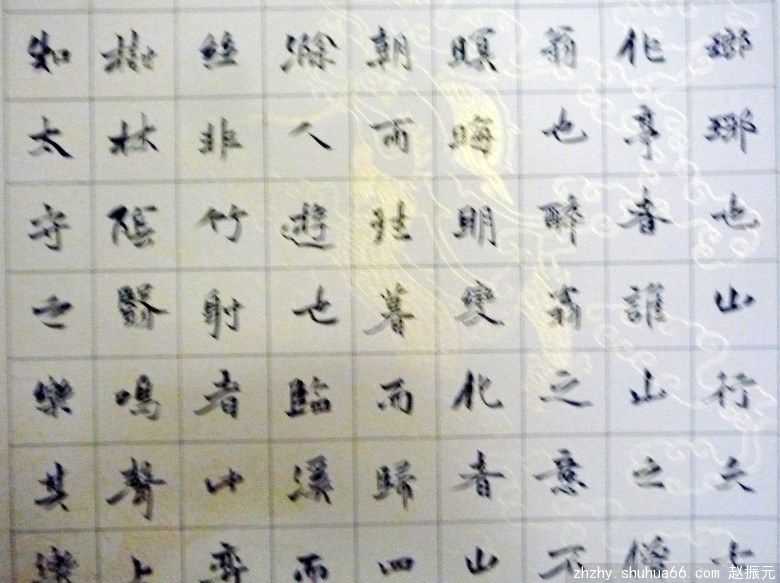 瑯琊也山行六七
作亭者誰山之僧
翁也醉翁之意不
暝晦明變化者山
朝而往暮而歸四
滁人遊也臨溪而
絲非竹射者中弈
樹林陰翳鳴聲上
知太守之樂其樂
zhzhy.shuhua66.com 赵振元